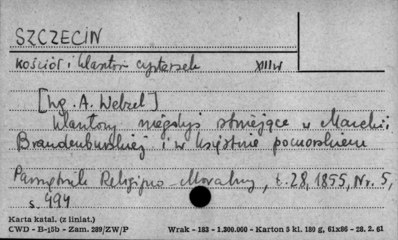 SZCZECIN
Kościół i klasztor cysterzek XIII w
[Wg. A. Wetzel]
Klasztory niegdyś istniejące w Marchii
Brandenburskiej i w księstwie pomorskiem
Pamiętnik Religijno-Moralny, t. 28, 1855, Nr. 5,
s. 494
Karta katal. (z liniat.)
CWD - B-j5b - Zam. 289/ZW/P Wrak - 183 - 1.300.000 - Karton 5 kl. 180 g, 61x86 - 28. 2. 61